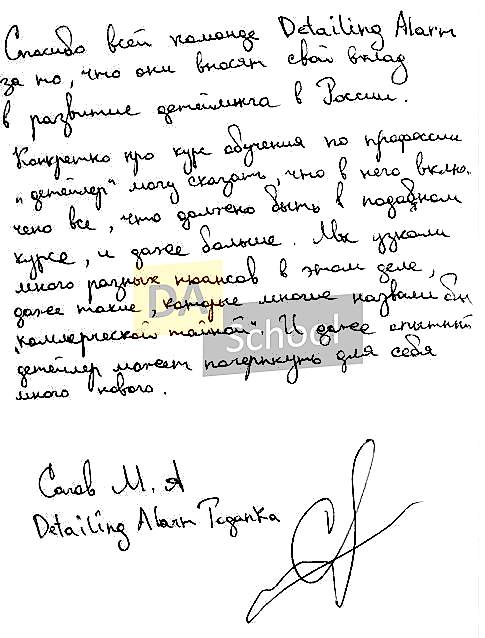 Спасибо всей команде Detailing Alarm
за то, что они вносят свой вклад
в развитие детейлинга в России.
Конкретно про курс обучения по профессии
"детейлер" могу сказать, что в него вклю-
чено все, что должно быть в подобном
курсе, и даже больше. Мы узнали
много разных нюансов в этом деле,
даже такие, которые многие назвали бы
"коммерческой тайной". И даже опытный
детейлер может почерпнуть для себя
много нового.
DA
School
М. А
Detailing Alarm Таганка